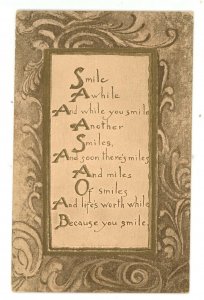 Smile
Awhile
And while you smile
Another
Smiles,
And soon there's miles
And miles
Of smiles
And life's worth while
Because you smile.